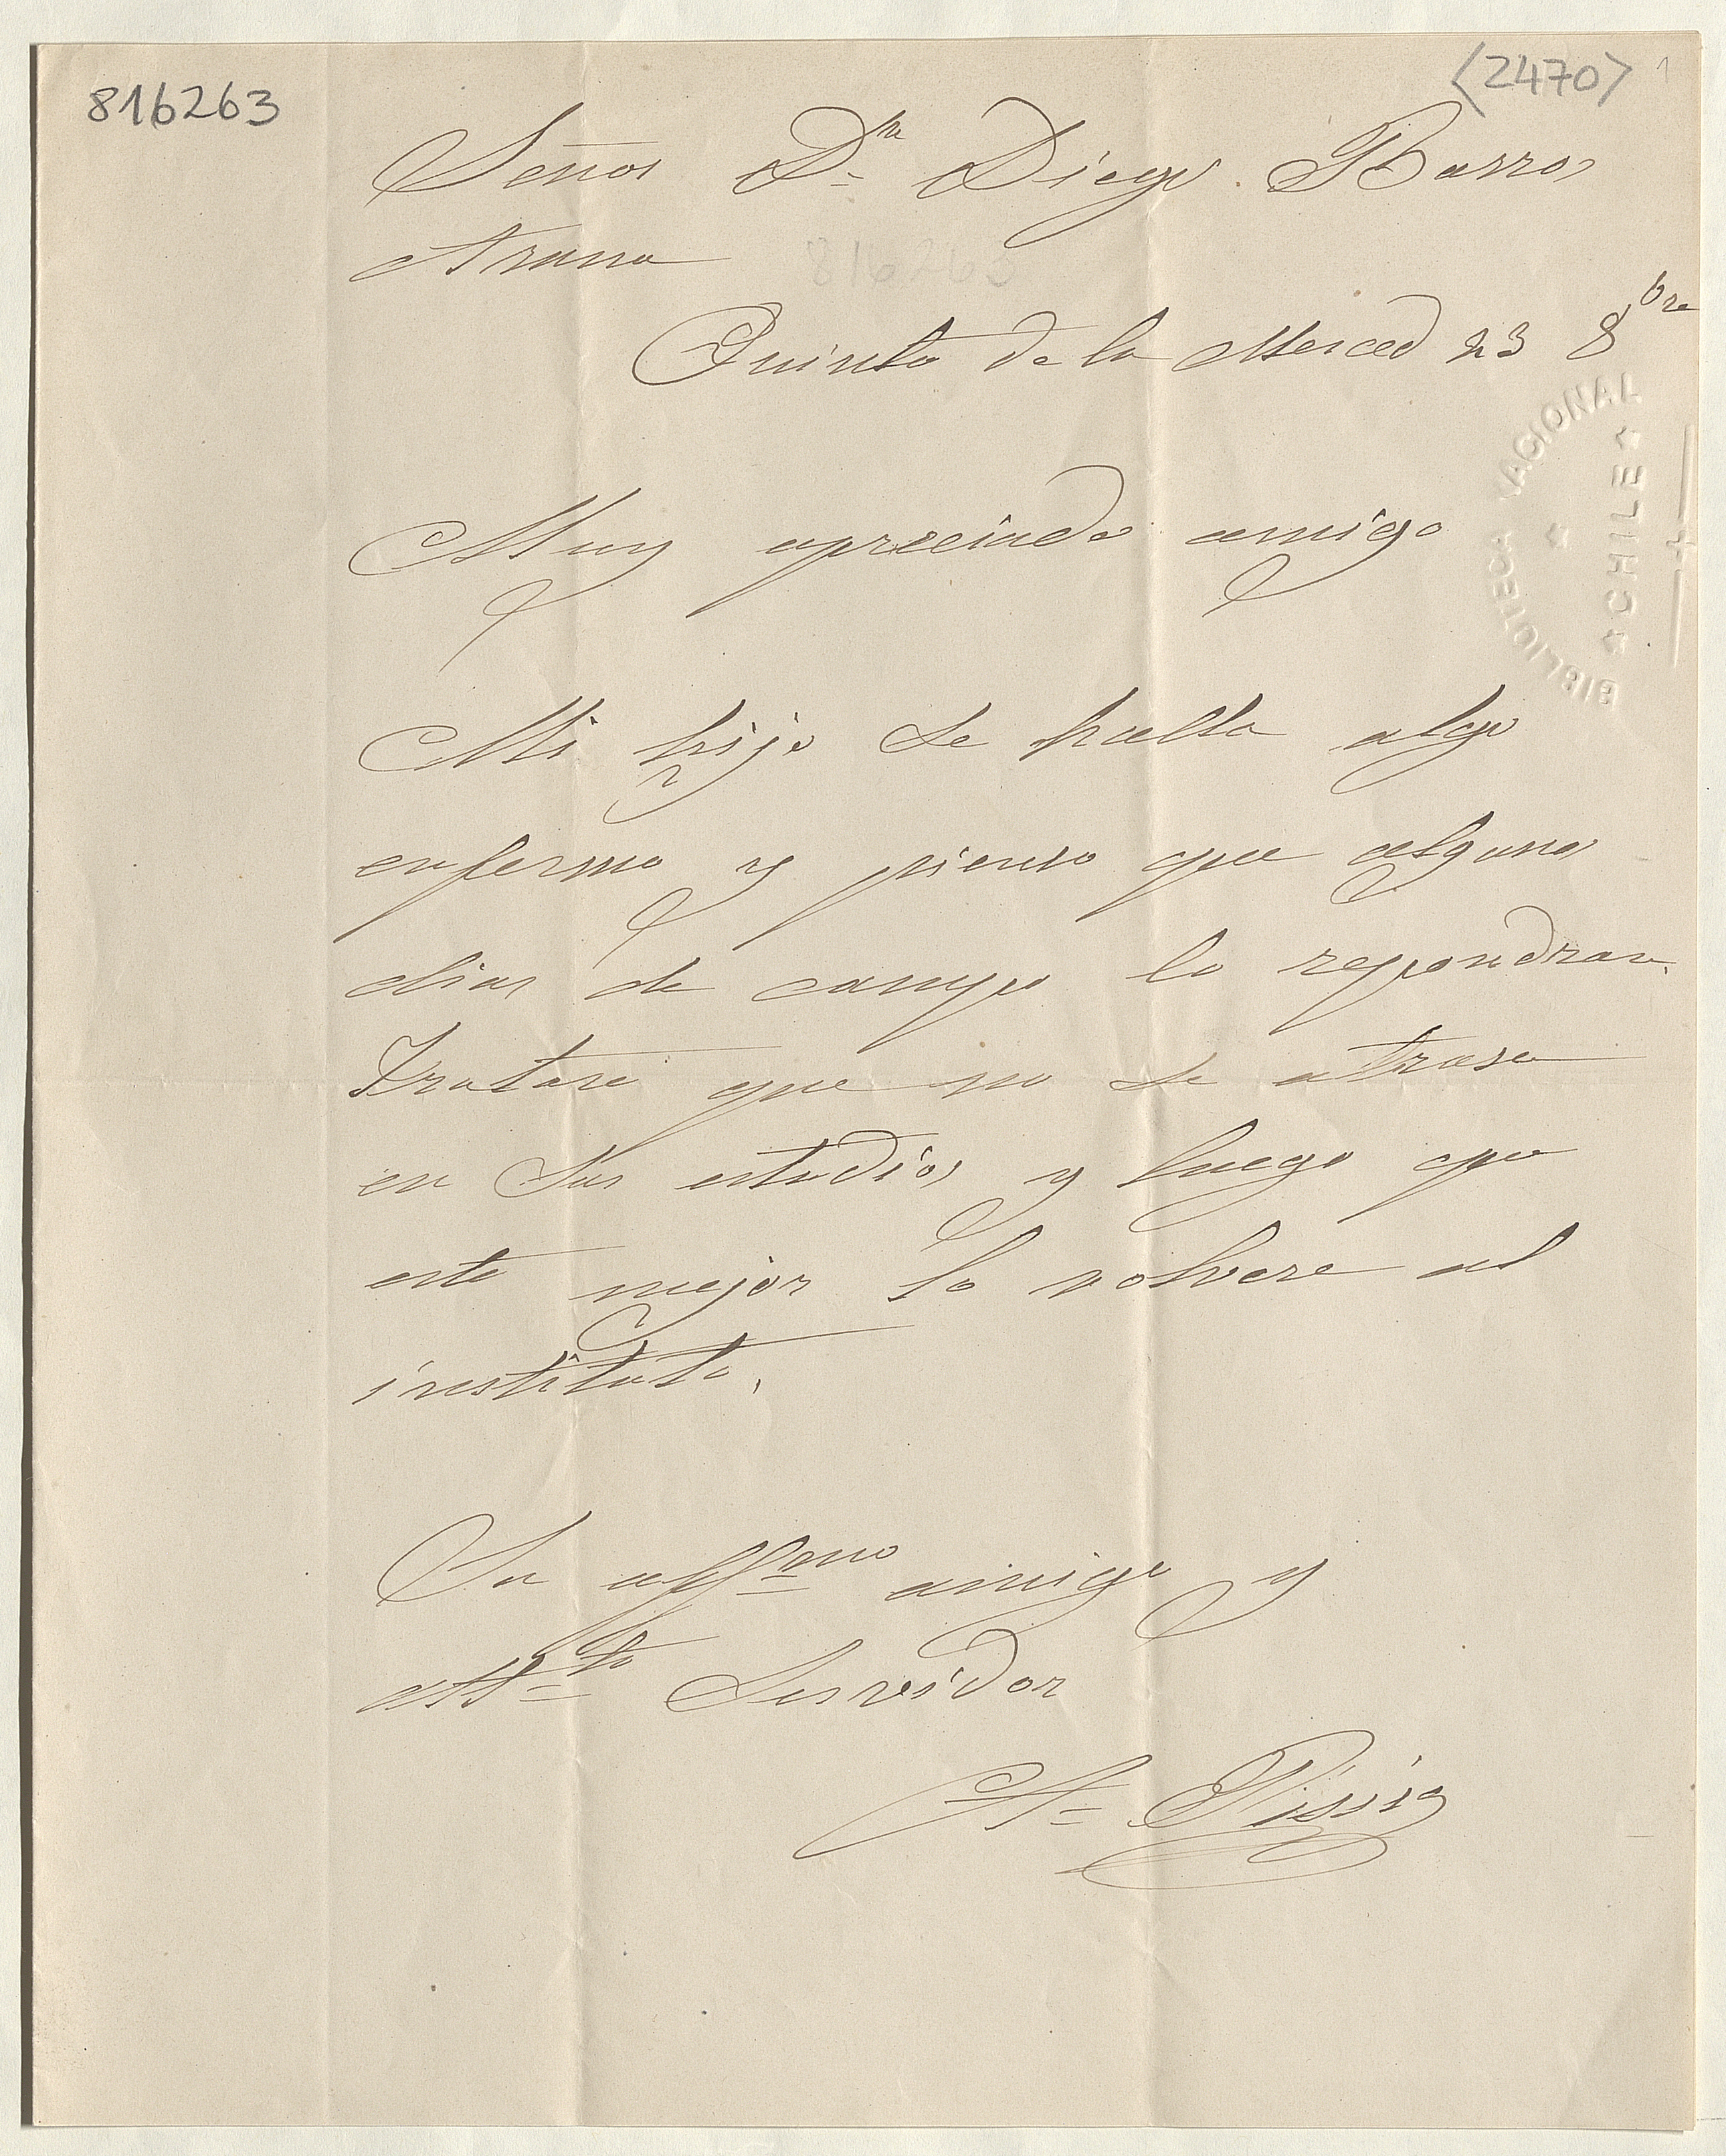 816263
<2470> 1
Señor Dn Diego Barros
Arana
816263
Quinta de la Merced 23 8bre
BIBLIOTECA NACIONAL
CHILE
Muy apreciado amigo
Mi hijo se halla algo
enfermo y pienso que algunos
dias de campo lo repondran.
Tratare que no se atrase
en sus estudios y luego que
este mejor lo volvere al
instituto.
Su affmo amigo y
Atto Servidor
A. Pissis